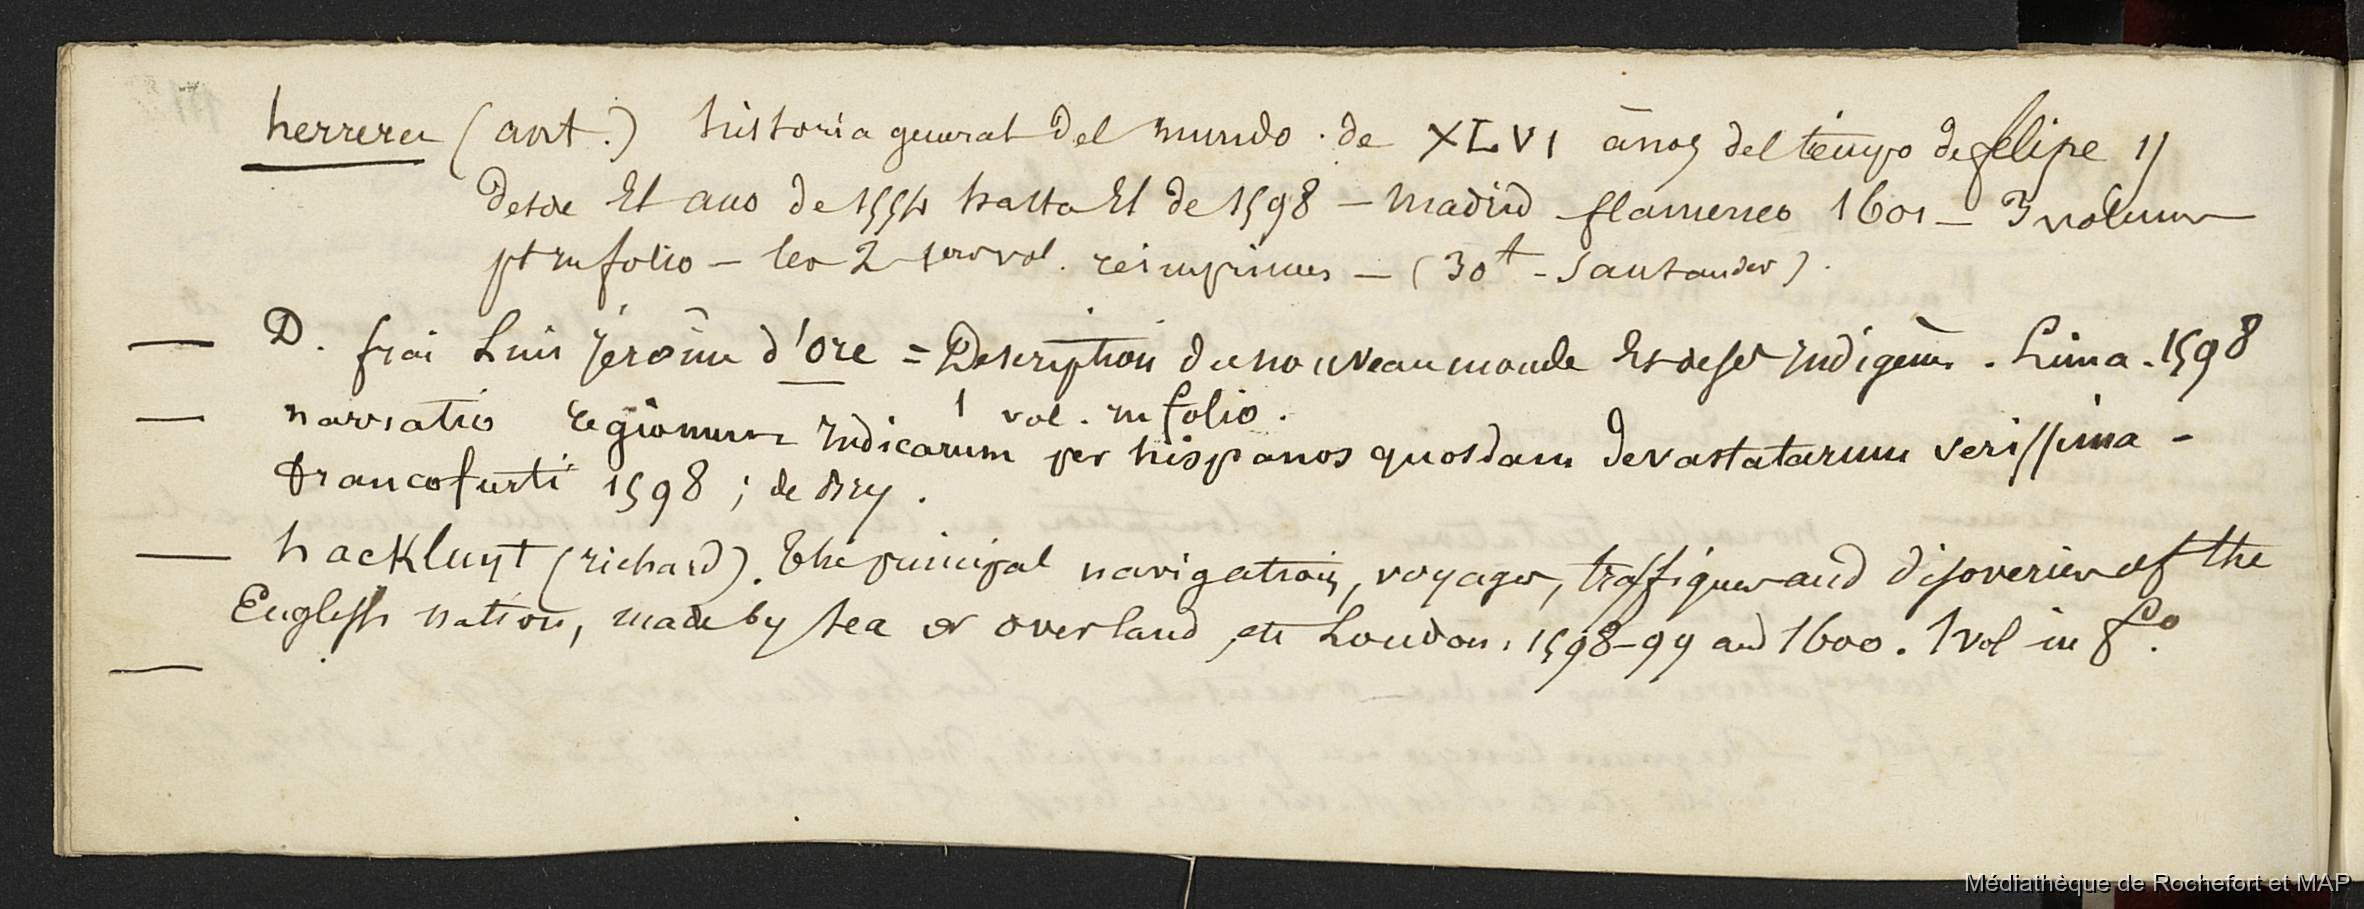 herrera (ant.) historia general del mundo. de XLVI años del tiempo de felipe II
desde El ano de 1554 hasta El de 1598 – Madrid flamenco 1601 – 3 volumes
pt in folio – les 2 1ers vol. réimprimés – (30t - Santander).
— D. frai Luis Jérôme d'Ore = Description du nouveau monde Et de ses Indigènes. Lima. 1598
1 vol. in folio.
— narratio regionum Indicarum per hispanos quosdam devastatarum verissima -
francofurti 1598 ; de Bry.
— hackluyt (richard). The principal navigations, voyages, traffiques and discoveries of the
English nation, made by sea or overland etc London, 1598-99 and 1600. 1 vol in f°.
—
Médiathèque de Rochefort et MAP